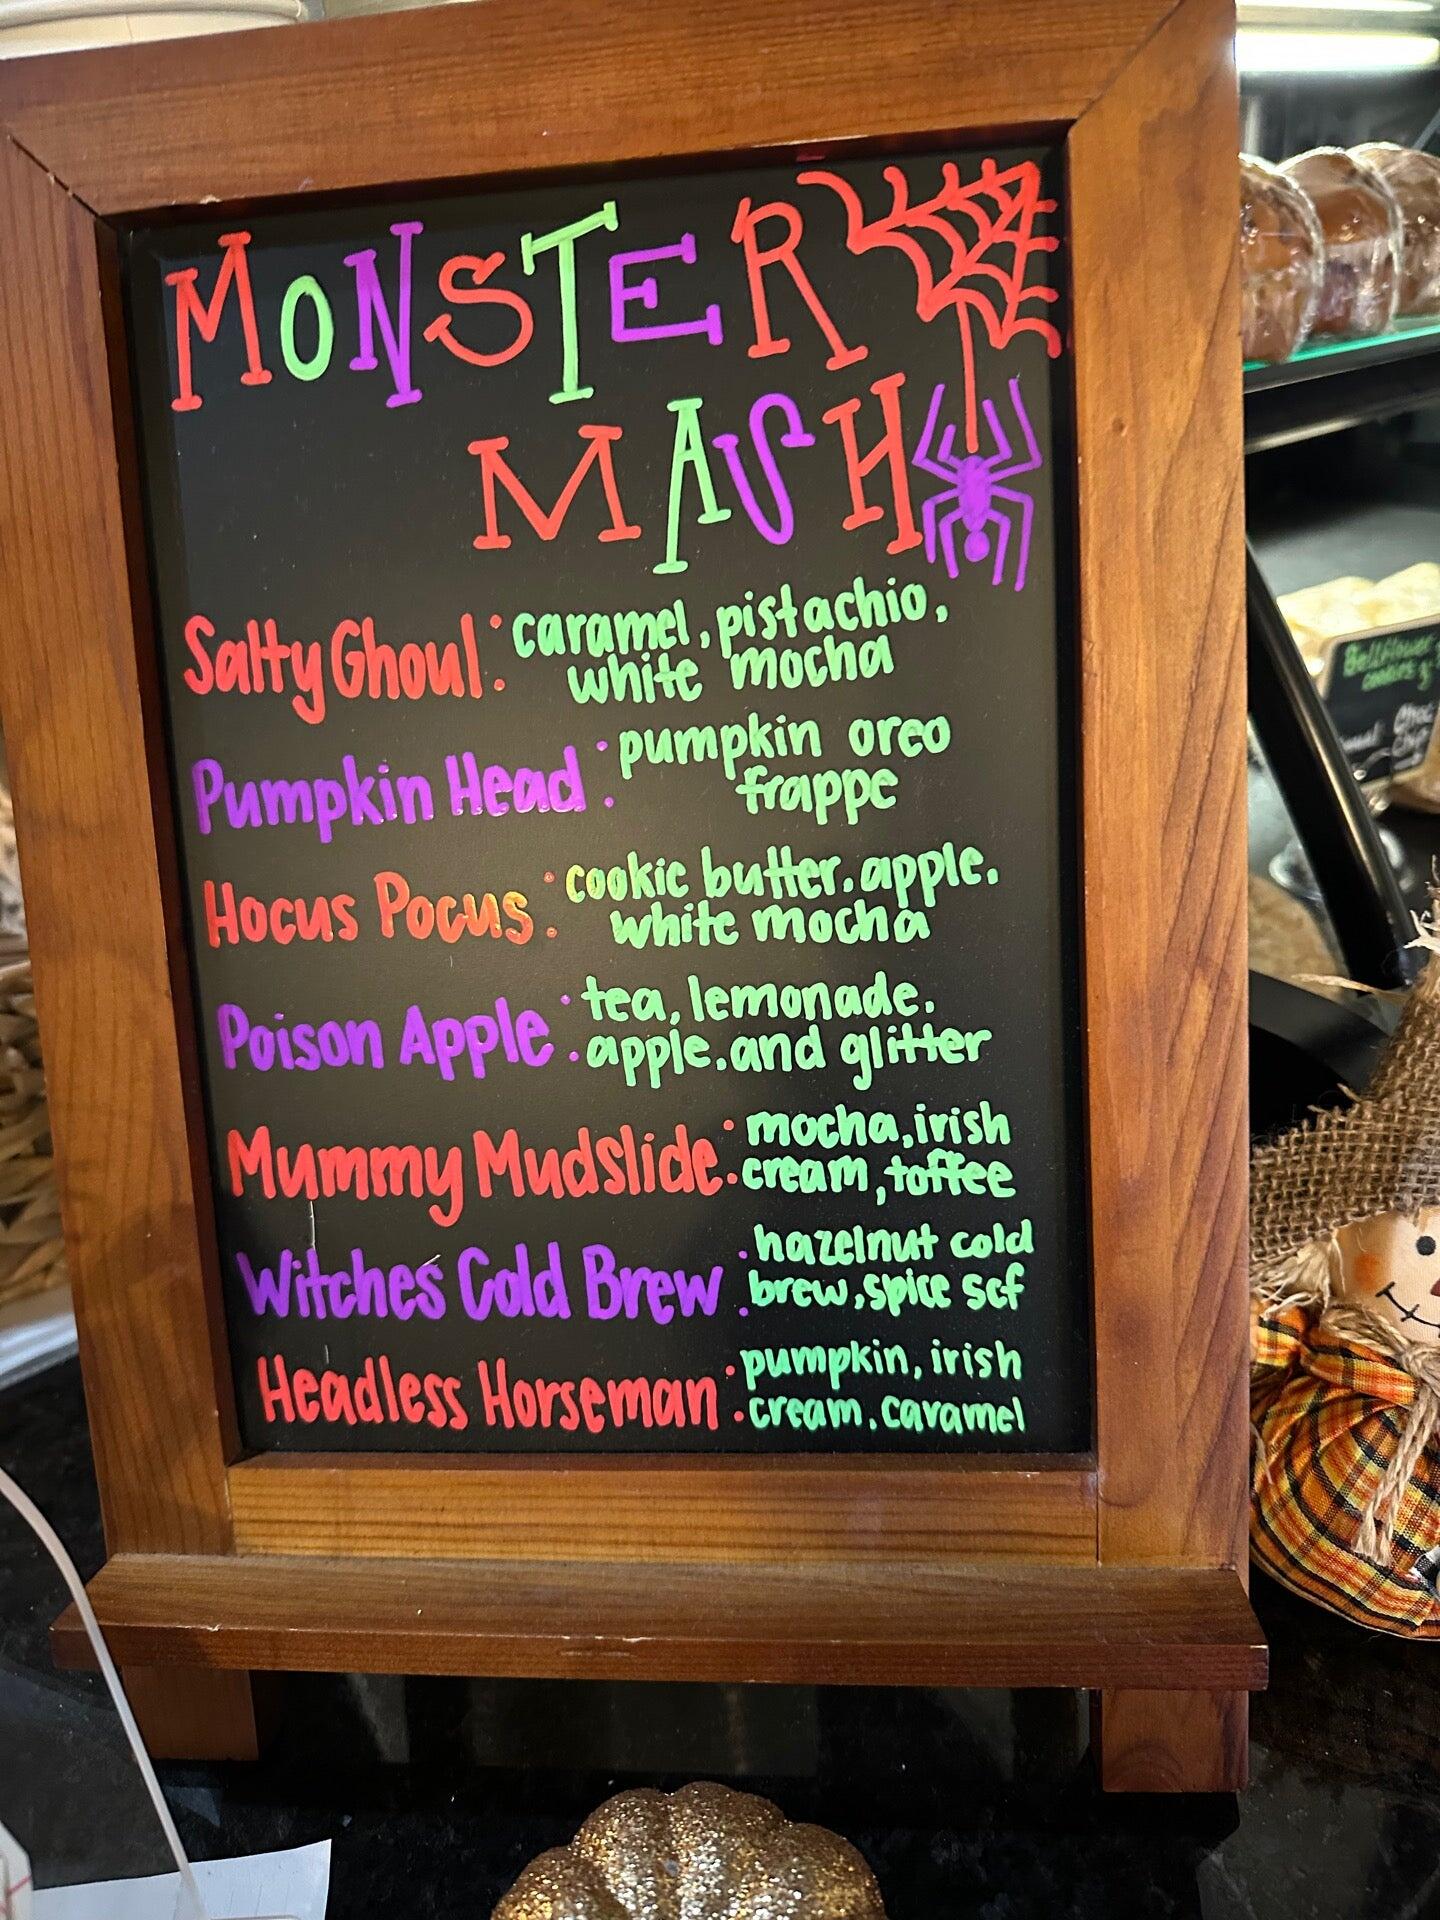 MONSTER
MASH
Salty Ghoul: caramel, pistachio,
white mocha
Pumpkin Head: pumpkin oreo
frappe
Hocus Pocus: cookie butter, apple,
white mocha
Poison Apple: tea, lemonade,
apple, and glitter
Mummy Mudslide: mocha, irish
cream, toffee
Witches Cold Brew: hazelnut cold
brew, spice scf
Headless Horseman: pumpkin, irish
cream, caramel
Bellflower
cookies